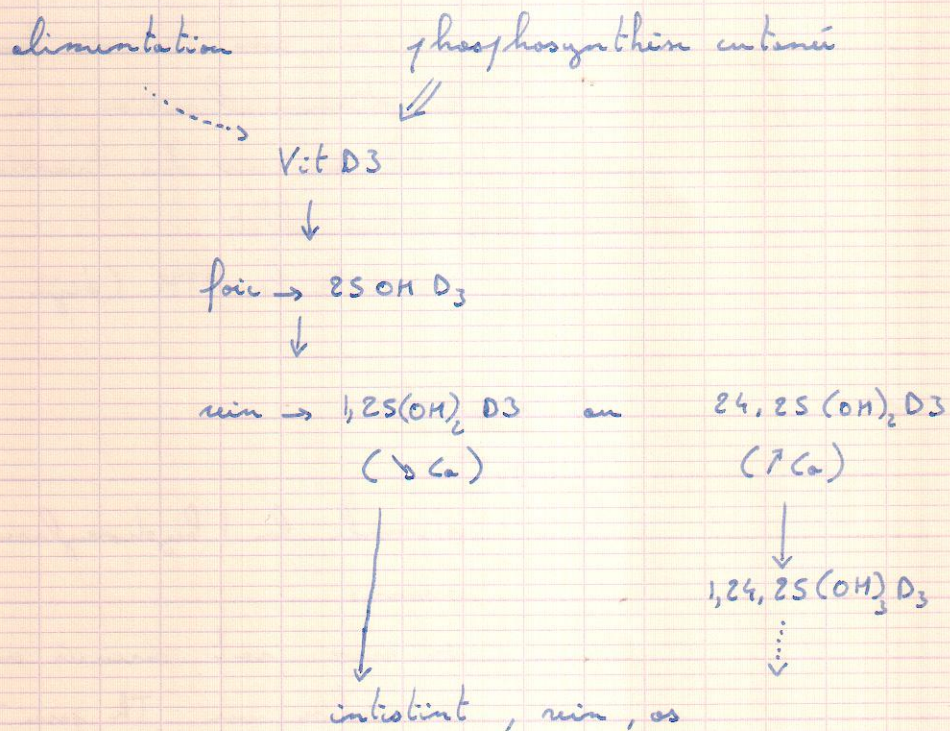 alimentation phosphosynthèse cutanée
Vit D3
foie → 25 OH D3
rein → 1,25(OH)2 D3 ou 24,25 (OH)2 D3
(↘ Ca) (↗ Ca)
1,24,25(OH)3 D3
intestint, rein, os